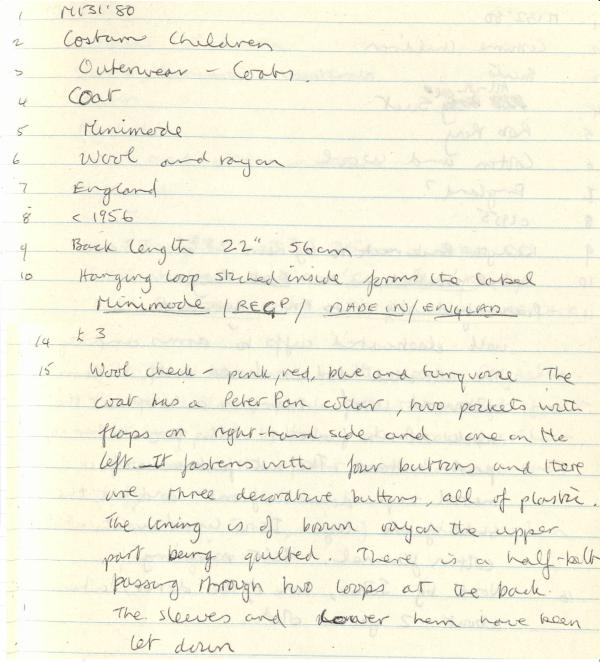 1 M131'80
2 Costume Children
3 Outerwear - Coats.
4 Coat
5 Minimode
6 Wool and rayon
7 England
8 < 1956
9 Back length 22" 56cm
10 Hanging loop stitched inside forms the label
Minimode / REGD / MADE IN / ENGLAND
14 £3
15 Wool check - pink, red, blue and turquoise The
coat has a Peter Pan collar, two pockets with
flaps on right-hand side and one on the
left. It fastens with four buttons and there
are three decorative buttons, all of plastic.
The lining is of brown rayon the upper
part being quilted. There is a half-belt
passing through two loops at the back.
The sleeves and lower hem have been
let down